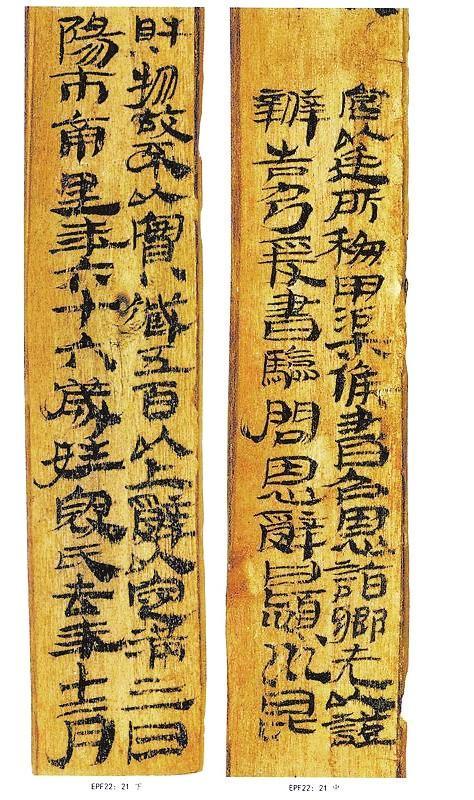 宮以廷所移甲渠候書召恩詣鄉先以證
辨告乃爰書驗問恩辭曰潁川昆
財物故不以實臧五百以上辭以定滿三日
陽市南里年六十六歲姓寇氏去年十二月
EPF22: 21 下
EPF22: 21 中